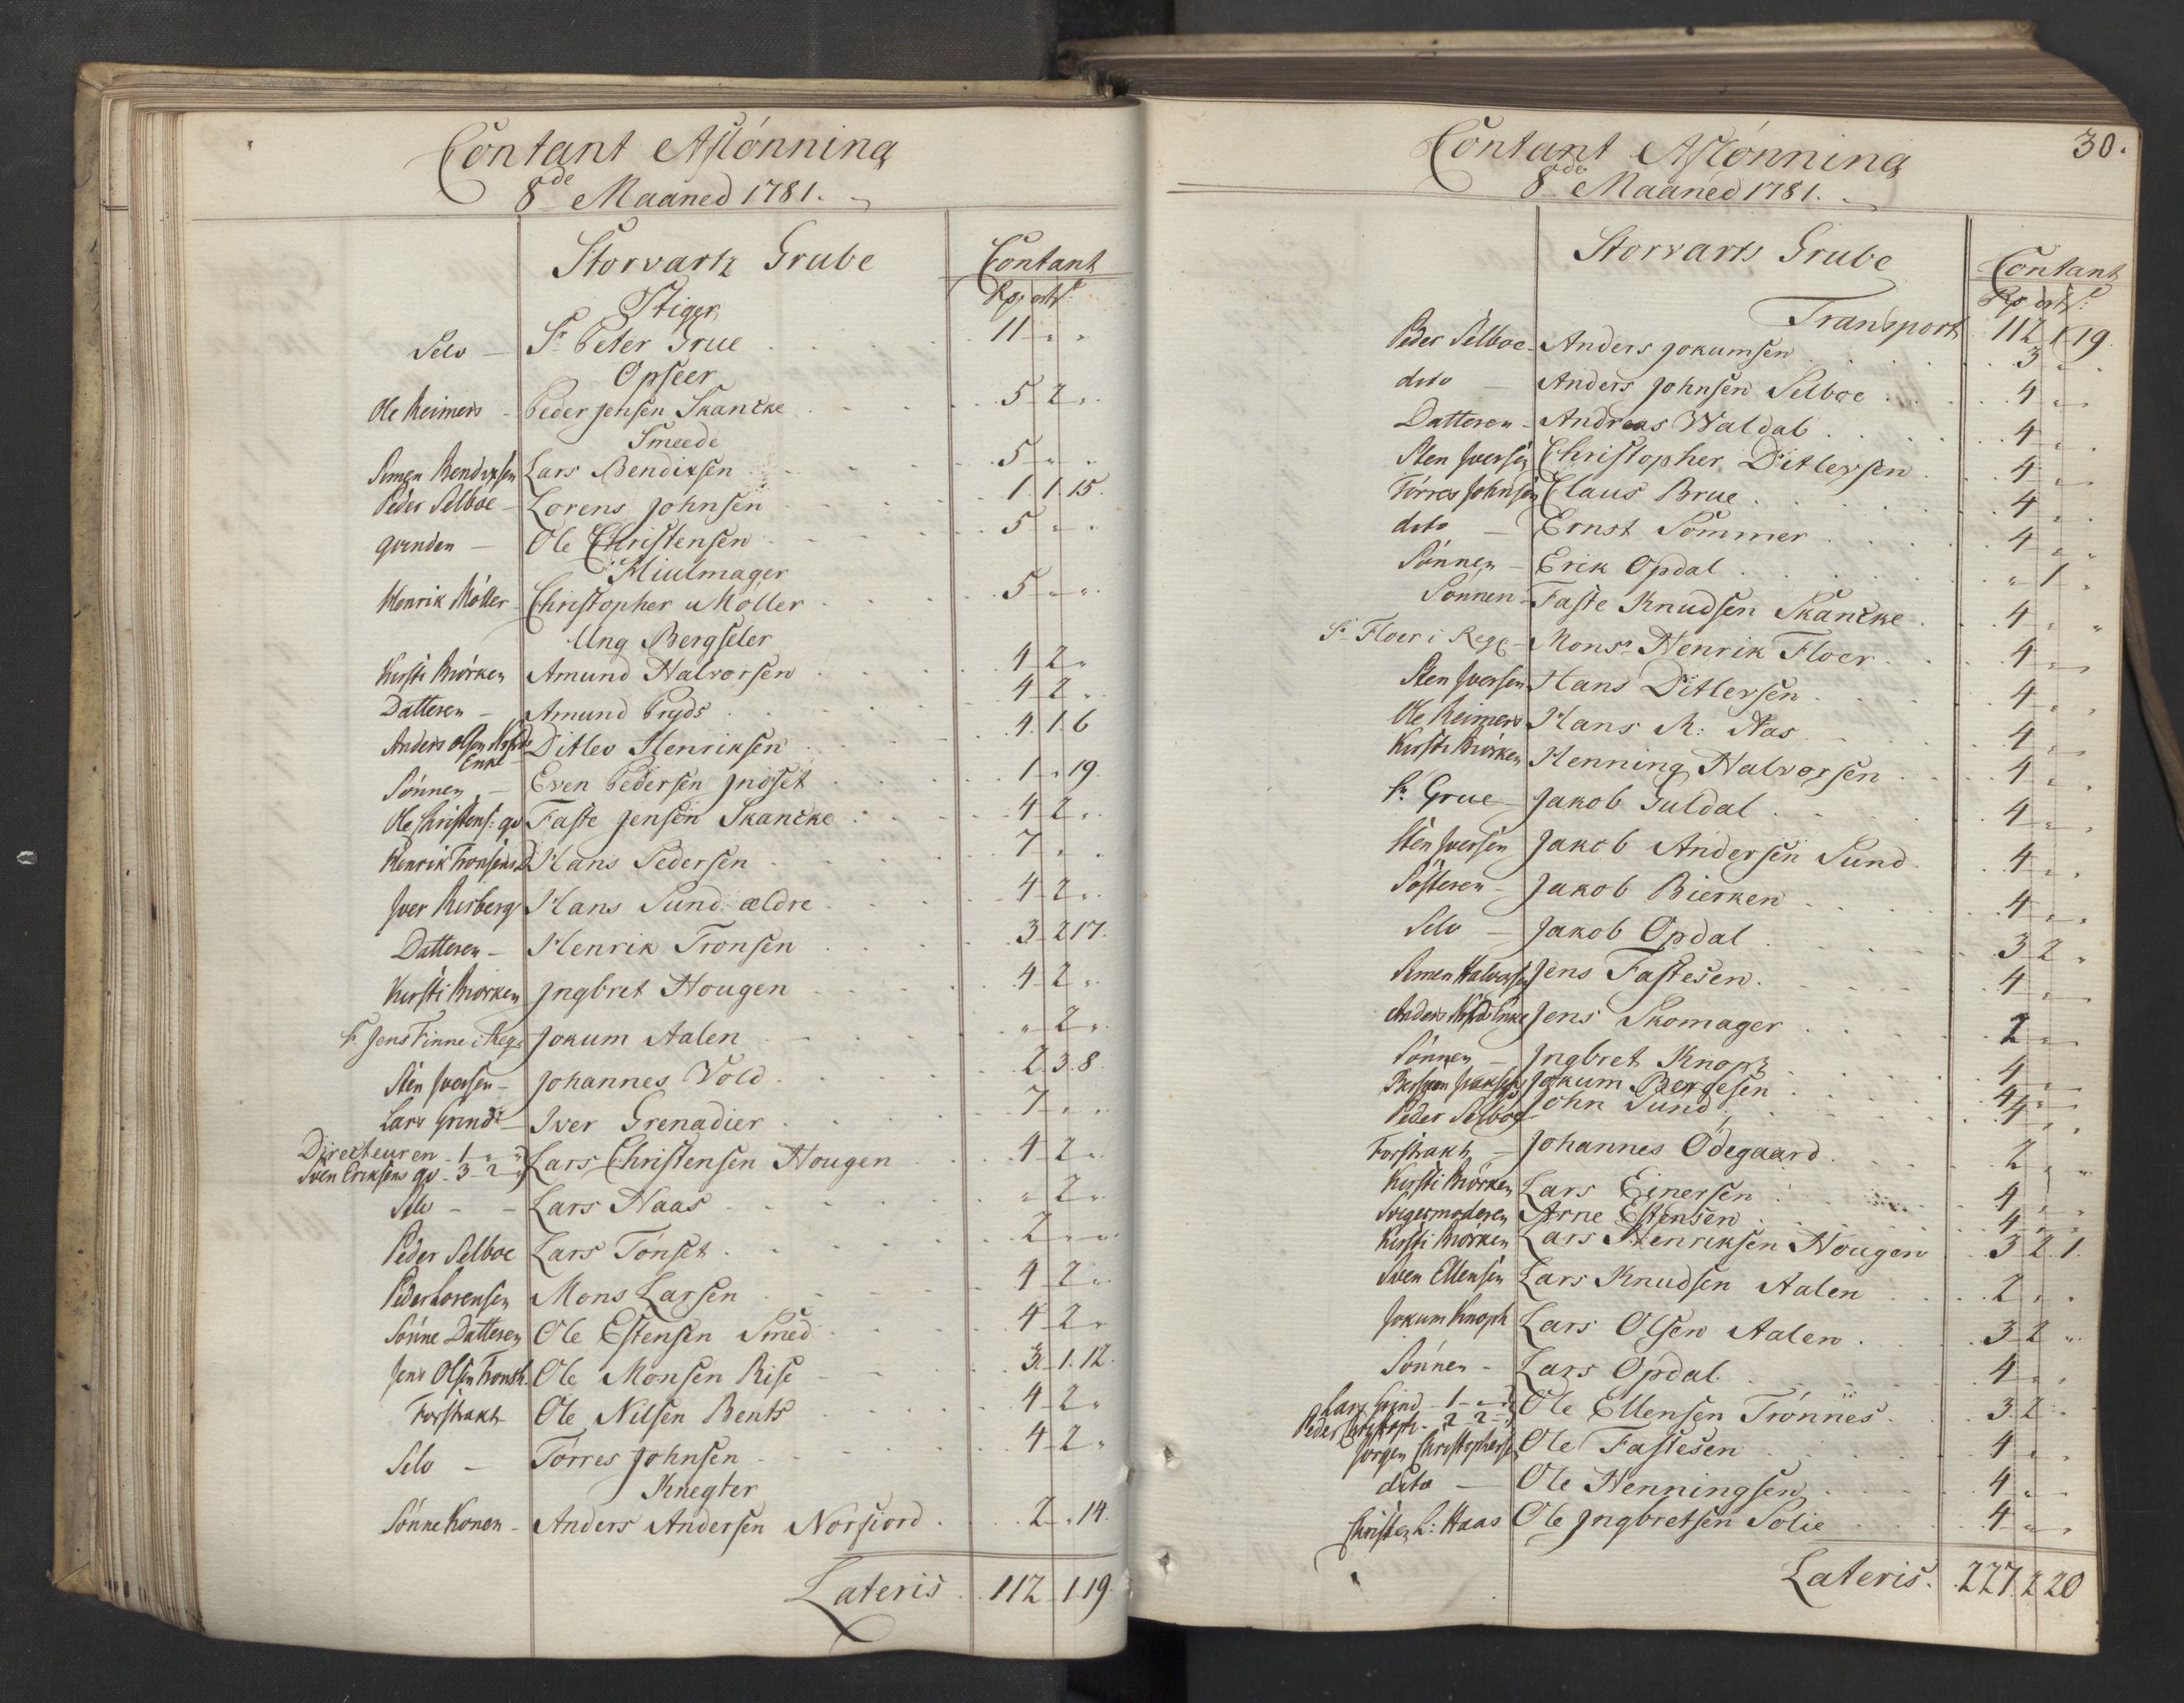 Contant Aflönning
8de Maaned 1781.
Storvartz Grube Contant
Stiger Rp ort s:
Selv — Sr Peter Grue 11 " "
Opseer
Ole Reimers - Peder Jensen Skancke 5 2 "
Smeede
Simen Bendixsen Lars Bendixsen 5 " "
Peder Selboe - Lorens Johnsen 1. 1. 15.
qvinden — Ole Christensen 5 " "
Hiulmager
Henrik Möller Christopher Möller 5 " "
Ung Bergseler
Kirsti Biörken Amund Halvorsen 4 2 "
Datteren — Amund Pryds 4 2 "
Anders Olsen Enke Ditlev Henriksen 4. 1. 6
Sönnen — Even Pedersen Indset 1 " 19.
Ole Christens: qv Faste Jensen Skancke 4 2 "
Henrik Tronsens Hans Pedersen 7 " "
Iver Hans Sund ældre 4 2 "
Datteren — Henrik Tronsen 3 2 17.
Kirsti Biörken Ingbret Hougen 4 2 "
Sr Jens Finne i Regg Jokum Aalen " 2 "
Sten Iversen - Johannes Vold 2. 3. 8.
Lars Grind — Iver Grenadier 7 " "
Directeuren - 1 " "
Sven Eriksens qv - 3 - 2 " Lars Christensen Hougen 4 2 "
Selv - - Lars Haas " 2 "
Peder Selboe Lars Tönset 2 " "
Peder Lorensen Mons Larsen 4 2 "
Sönne Datteren Ole Estensen Smed 4 2 "
Jens Olsen Ole Monsen Rise 3 1. 12.
Forstrakt Ole Nilsen Bents 4 2 "
Selv — Törres Johnsen 4 2 "
Knegter
Sönne Konen - Anders Andersen Norfiord 2 " 14.
Lateris 112 1 19.
30.
Contant Aflönning
8de Maaned 1781.
Storvarts Grube Contant
Rp ort s:
Transport 112 1 19.
Peder Selboe - Anders Jokumsen 3 " "
dito — Anders Johnsen Selboe 4 " "
Datteren - Andreas Waldal 4 " "
Sten Iversen Christopher Ditlevsen 4 " "
Törres Johnsen Claus Brue 4 " "
dito — Ernst Sommer 4 " "
Sönnen — Erik Opdal " 1 "
Sönnen - Faste Knudsen Skancke 4 " "
Sr Floer i Regg - Monsr Henrik Floer 4 " "
Sten Iversen Hans Ditlevsen 4 " "
Ole Reimers Hans R: Aas 4 " "
Kirsti Biörken Henning Halvorsen 4 " "
Sr Grue - Jakob Guldal 4 " "
Sten Iversen Jakob Andersen Sund 4 " "
Sösteren - Jakob Bierken 4 " "
Selv — Jakob Opdal 3 2 "
Simen Halvorsen Jens Fastesen 4 " "
Anders Enke Jens Skomager 2 " "
Sönnen — Ingbret Knoph 4 " "
Jokum Bergesen 4 " "
Peder Selboe John Sund 4 " "
Forstrakt — Johannes Ödegaard 2 " "
Kirsti Biörken Lars Einersen 4 " "
Svigermoderen Arne Estensen 4 " "
Kirsti Biörken Lars Henriksen Hougen 3 2 1.
Sven Ellensen Lars Knudsen Aalen 2 " "
Jokum Knoph Lars Olsen Aalen 3 2 "
Sönnen - Lars Opdal 4 " "
Lars Grind - 1 - "
Peder Christoph. - 2 - 2 - " Ole Ellensen Trönnes 3 2 "
Jörgen Christophersen Ole Fastesen 4 " "
dito — Ole Henningsen 4 " "
Christen L: Haas Ole Ingbretsen Solie 4 " "
Lateris. 227. 2 20